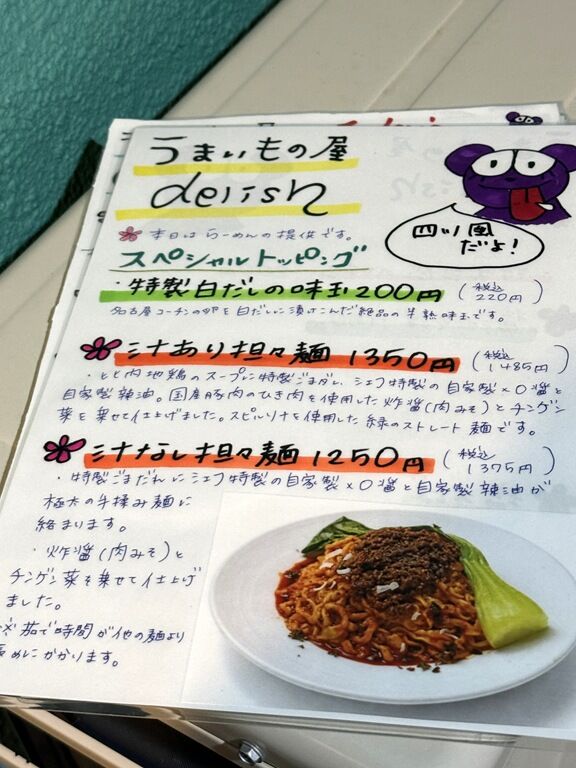 うまいもの屋
delish
四川風
だよ!
本日はらーめんの提供です。
スペシャルトッピング
・特製白だしの味玉200円(税込220円)
名古屋コーチンの卵を白だしに漬けこんだ絶品の半熟味玉です。
汁あり担々麺 1350円(税込1485円)
・とと肉地鶏のスープに特製ごまだれ、シェフ特製の自家製XO醬と
自家製辣油。国産豚肉のひき肉を使用した炸醬(肉みそ)とチンゲン
菜を乗せて仕上げました。スピルリナを使用した緑のストレート麺です。
汁なし担々麺 1250円(税込1375円)
・特製ごまだれにシェフ特製の自家製XO醬と自家製辣油が
極太の手揉み麺に
絡まります。
・炸醬(肉みそ)と
チンゲン菜を乗せて仕上げ
ました。
※茹で時間が他の麺より
長めにかかります。